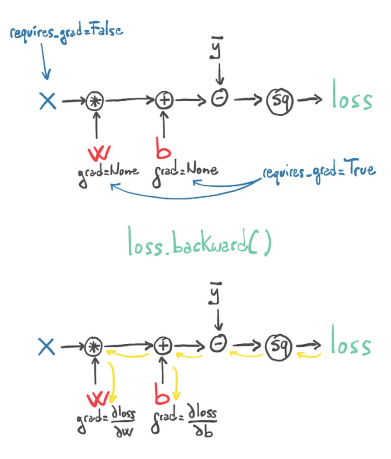 requires_grad=False
y̅
X * + - sq loss
w b
grad=None grad=None
requires_grad=True
loss.backward()
y̅
X * + - sq loss
w b
grad=∂loss/∂w grad=∂loss/∂b